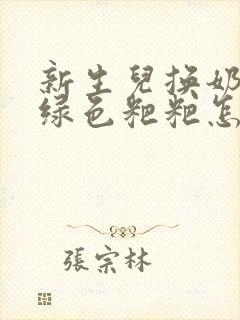 新生兒換奶
绿色粑粑怎
張宗林